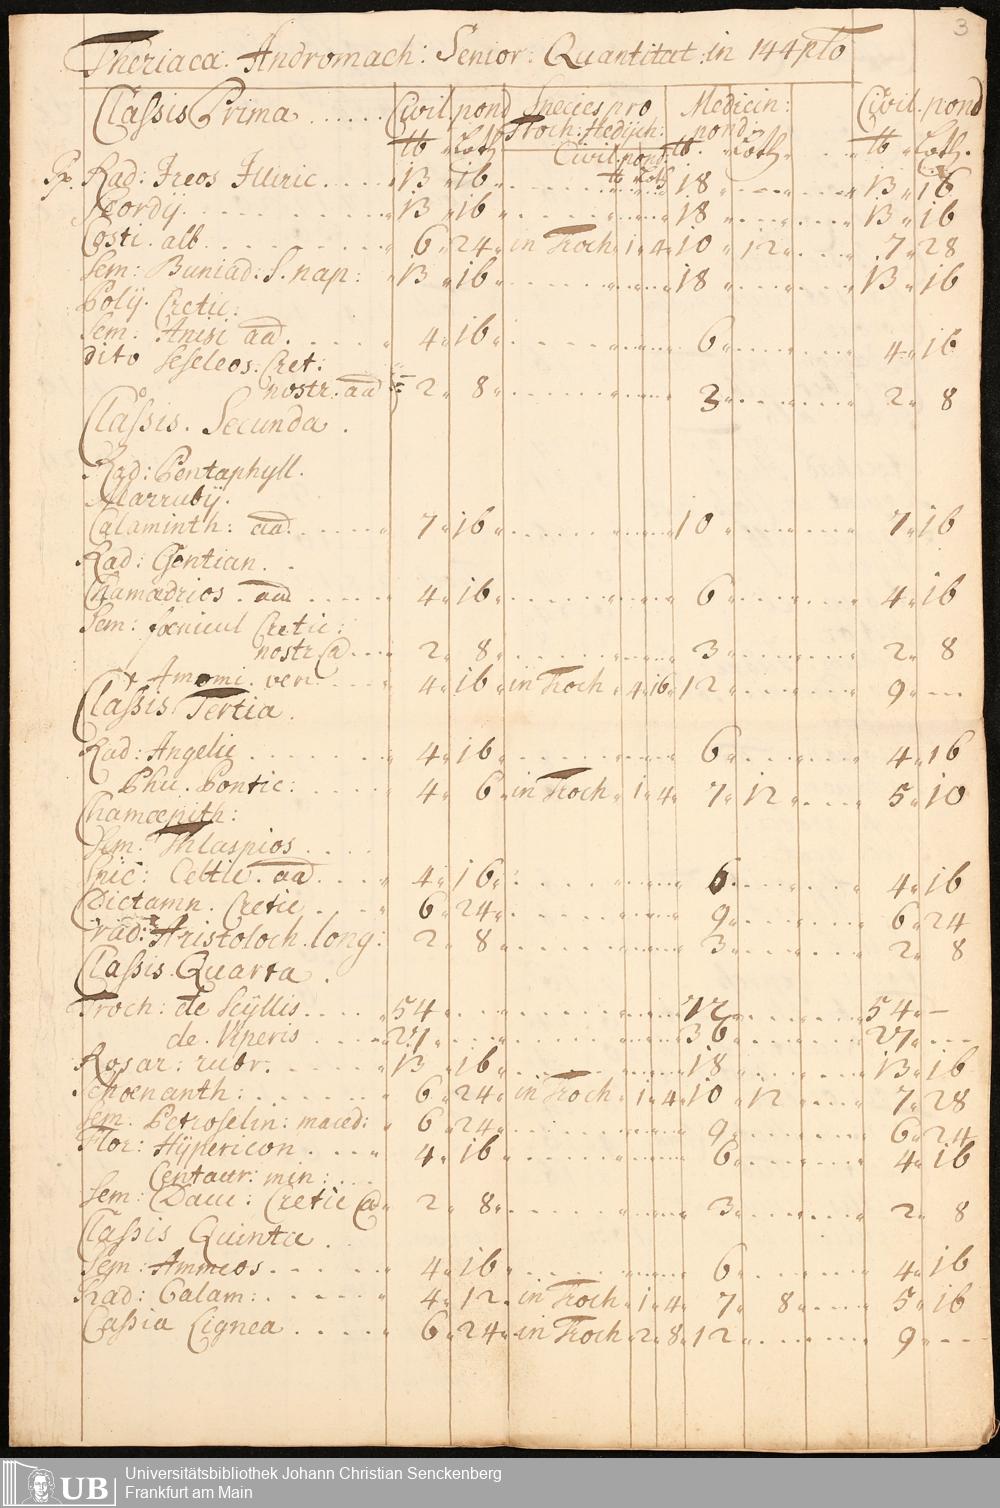 3
Theriaca. Andromach: Senior: Quantitat: in 144plo
Classis Prima ...... Civil. pond Species pro Medicin: Civil. pond
Troch: Hedijch: pond:
℔ Loth Civil. pond ℔. Loth. ℔ Loth.
℔ Loth
Rp. Rad: Ireos Illiric. 13 16 18 13 16
Scordy 13 16 18 13 16
Costi. alb. 6 24 in Troch 1 4 10 12 7 28
Sem: Buniad: S. nap: 13 16 18 13 16
Polÿ. Cretic:
Sem: Anisi aa. 4 16 6 4 16
dito Seseleos. Cret:
nostr. aa 2 8 3 2 8
Classis. Secunda.
Rad: Pentaphyll.
Marrubÿ.
Calaminth: aa. 7 16 10 7 16
Rad: Gentian.
Chamædrios. aa 4 16 6 4 16
Sem: fœnicul Cretic:
nostr @ 2 8 3 2 8
+ Amomi. veri 4 16 in Troch 4 16 12 9 —
Classis Tertia.
Rad: Angelic 4 16 6 4 16
Phu. Pontic: 4 6 in Troch 1 4 7 12 5 10
Chamœpith:
Sem. Thlaspios
Spic: Celtic. aa 4 16 6 4 16
Dictamn. Cretic 6 24 9 6 24
rad: Aristoloch. long: 2 8 3 2 8
Classis. Quarta.
Troch: de Scÿllis 54 72 54 —
de. Viperis 27 36 27 —
Rosar: rubr. 13 16 18 13 16
Schœnanth: 6 24 in Troch 1 4 10 12 7 28
Sem. Petroselin: maced: 6 24 9 6 24
Flor: Hÿpericon 4 16 6 4 16
Centaur: min:
Sem: Dauc: Cretic @ 2 8 3 2 8
Classis Quinta.
Sem: Ammeos 4 16 6 4 16
Rad: Calam: 4 12 in Troch 1 4 7 8 5 16
Cassia Lignea 6 24 in Troch 2 8 12 9 —
UB
Universitätsbibliothek Johann Christian Senckenberg
Frankfurt am Main